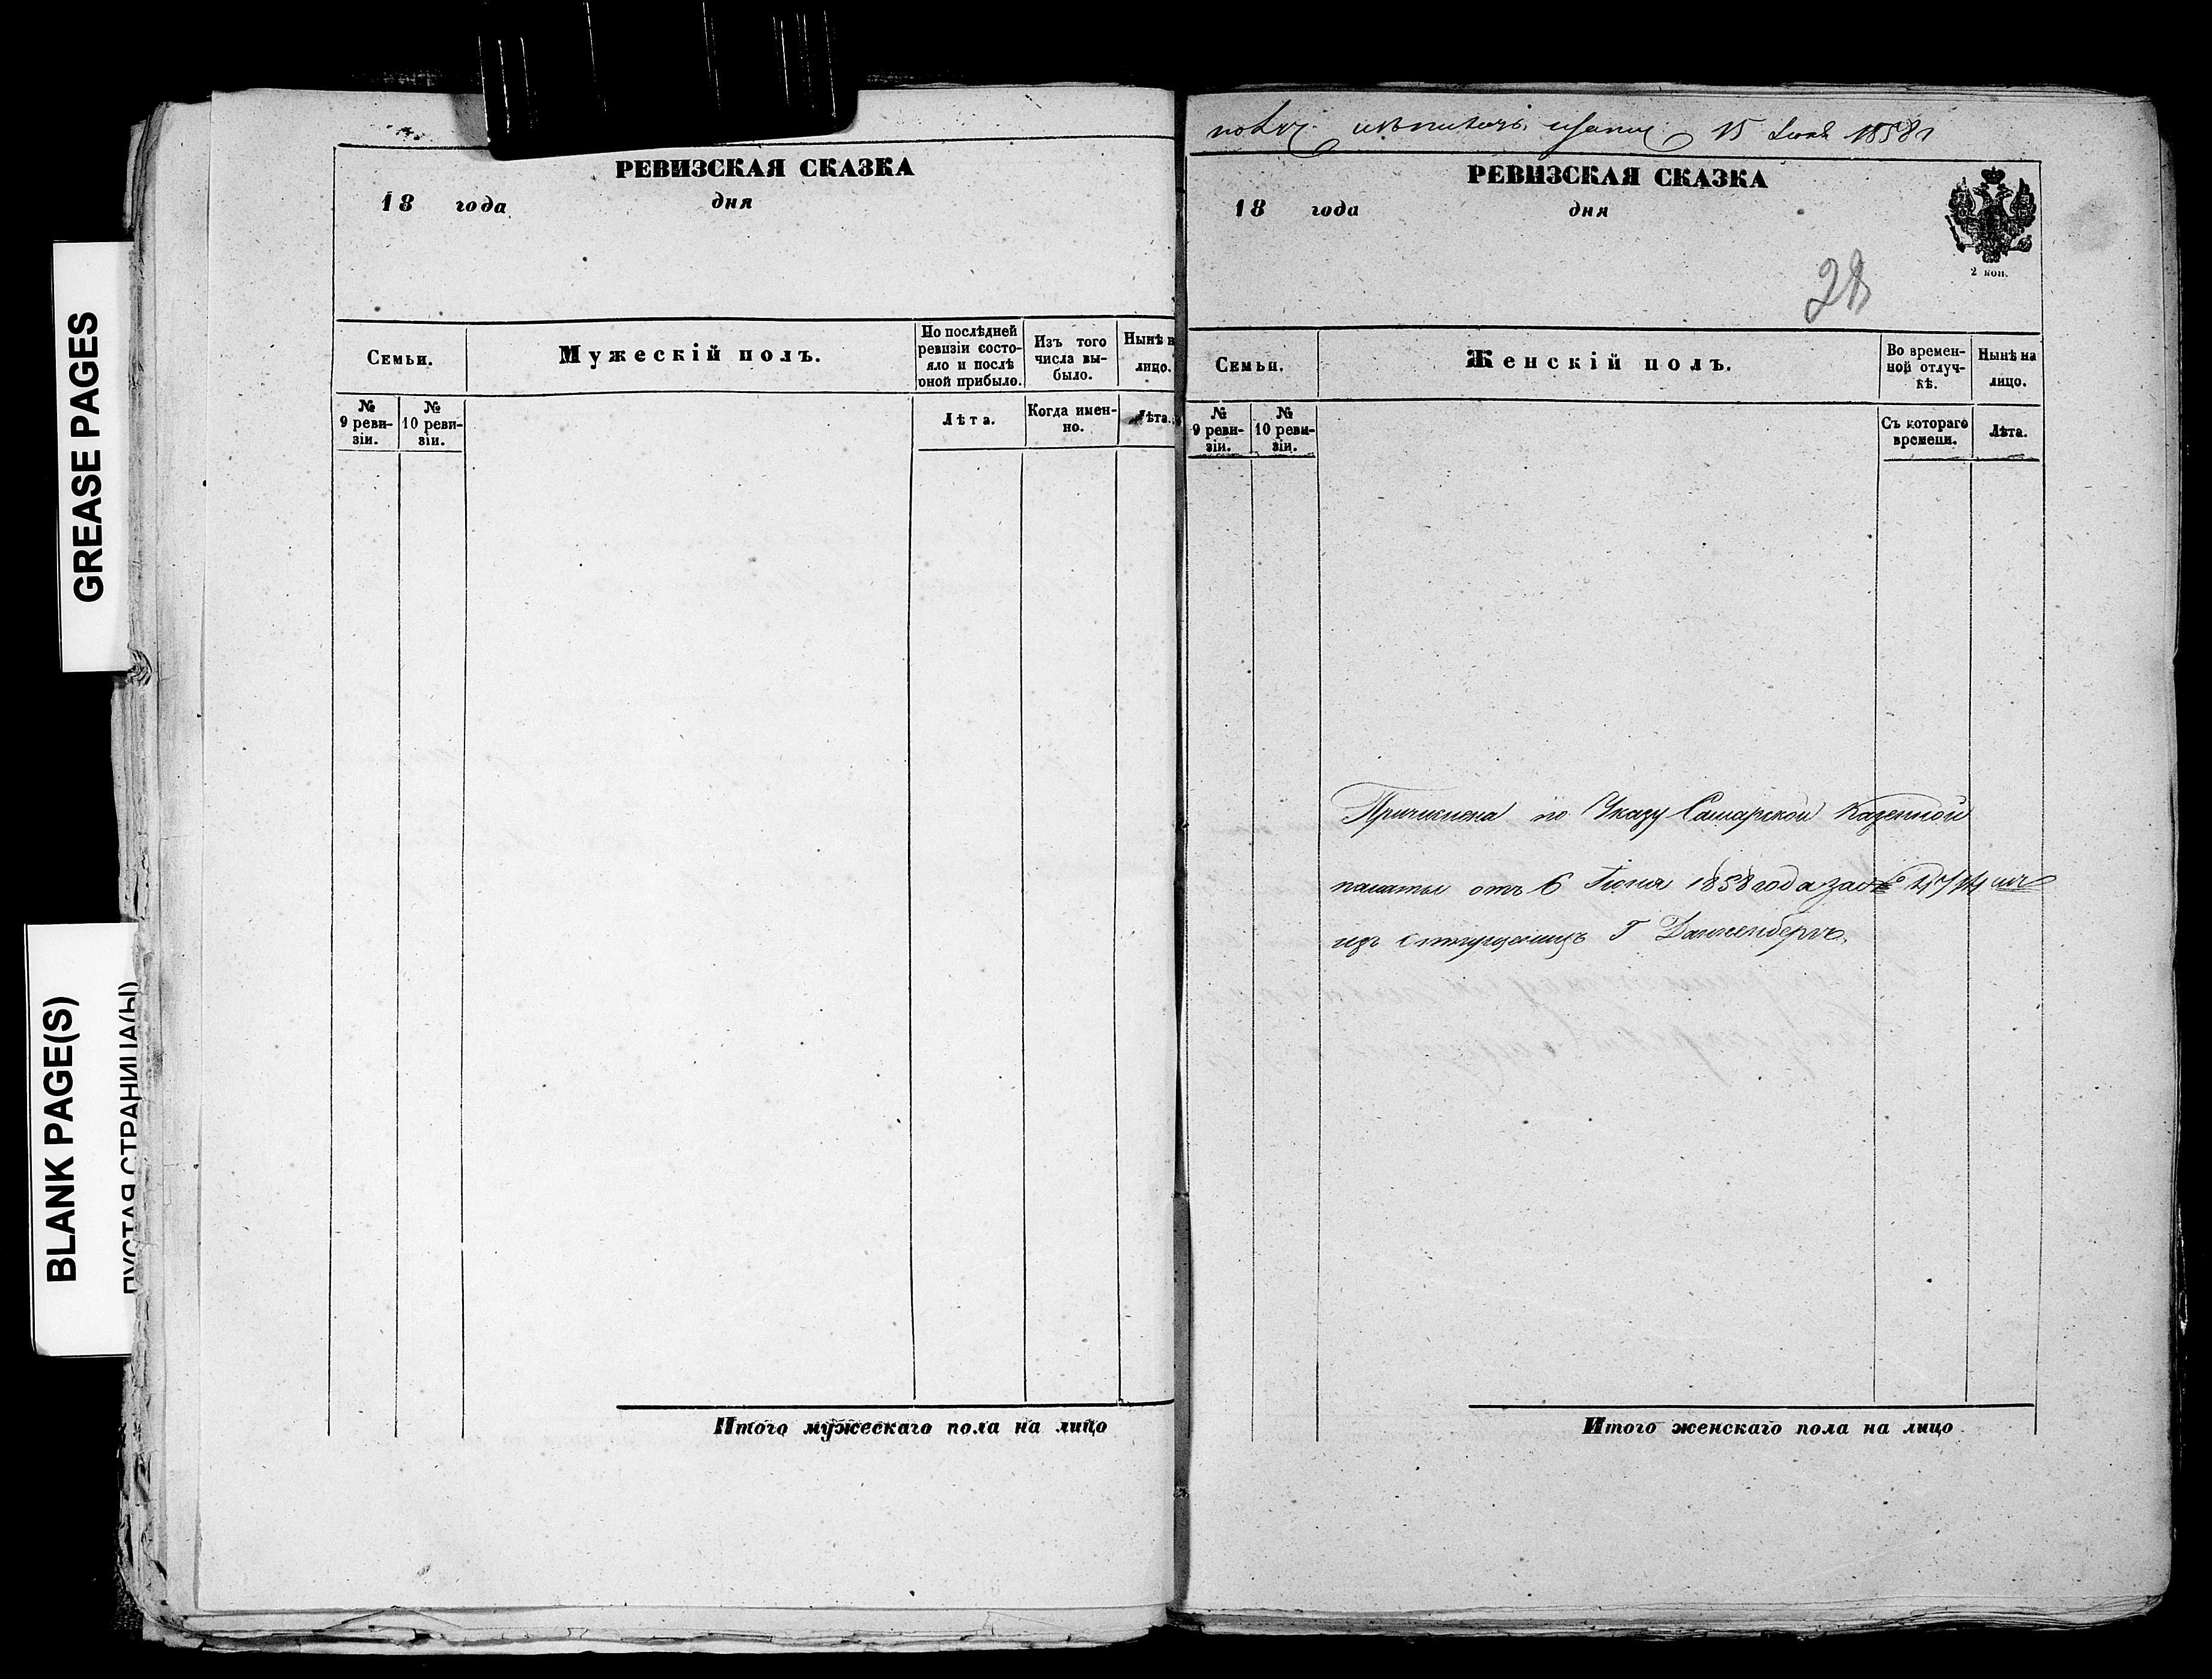 GREASE PAGES
BLANK PAGE(S)
ПУСТАЯ СТРАНИЦА(Ы)
РЕВИЗСКАЯ СКАЗКА
18 года дня
Семьи.
Мужескій полъ.
По послѣдней
ревизіи состо-
яло и послѣ
оной прибыло.
Изъ того
числа вы-
было.
Нынѣ н
лицо.
№
9 реви-
зіи.
№
10 реви-
зіи.
Лѣта.
Когда имен-
но.
Лѣта.
Итого мужескаго пола на лицо
15 1858
РЕВИЗСКАЯ СКАЗКА
18 года дня
2 коп.
28
Семьи.
Женскій полъ.
Во времен-
ной отлуч-
кѣ.
Нынѣ на
лицо.
№
9 реви-
зіи.
№
10 реви-
зіи.
Съ котораго
времени.
Лѣта.
Причислена по Указу Самарской Казенной
палаты отъ 6 Іюня 1858 года за
изъ Г Данненбергъ.
Итого женскаго пола на лицо